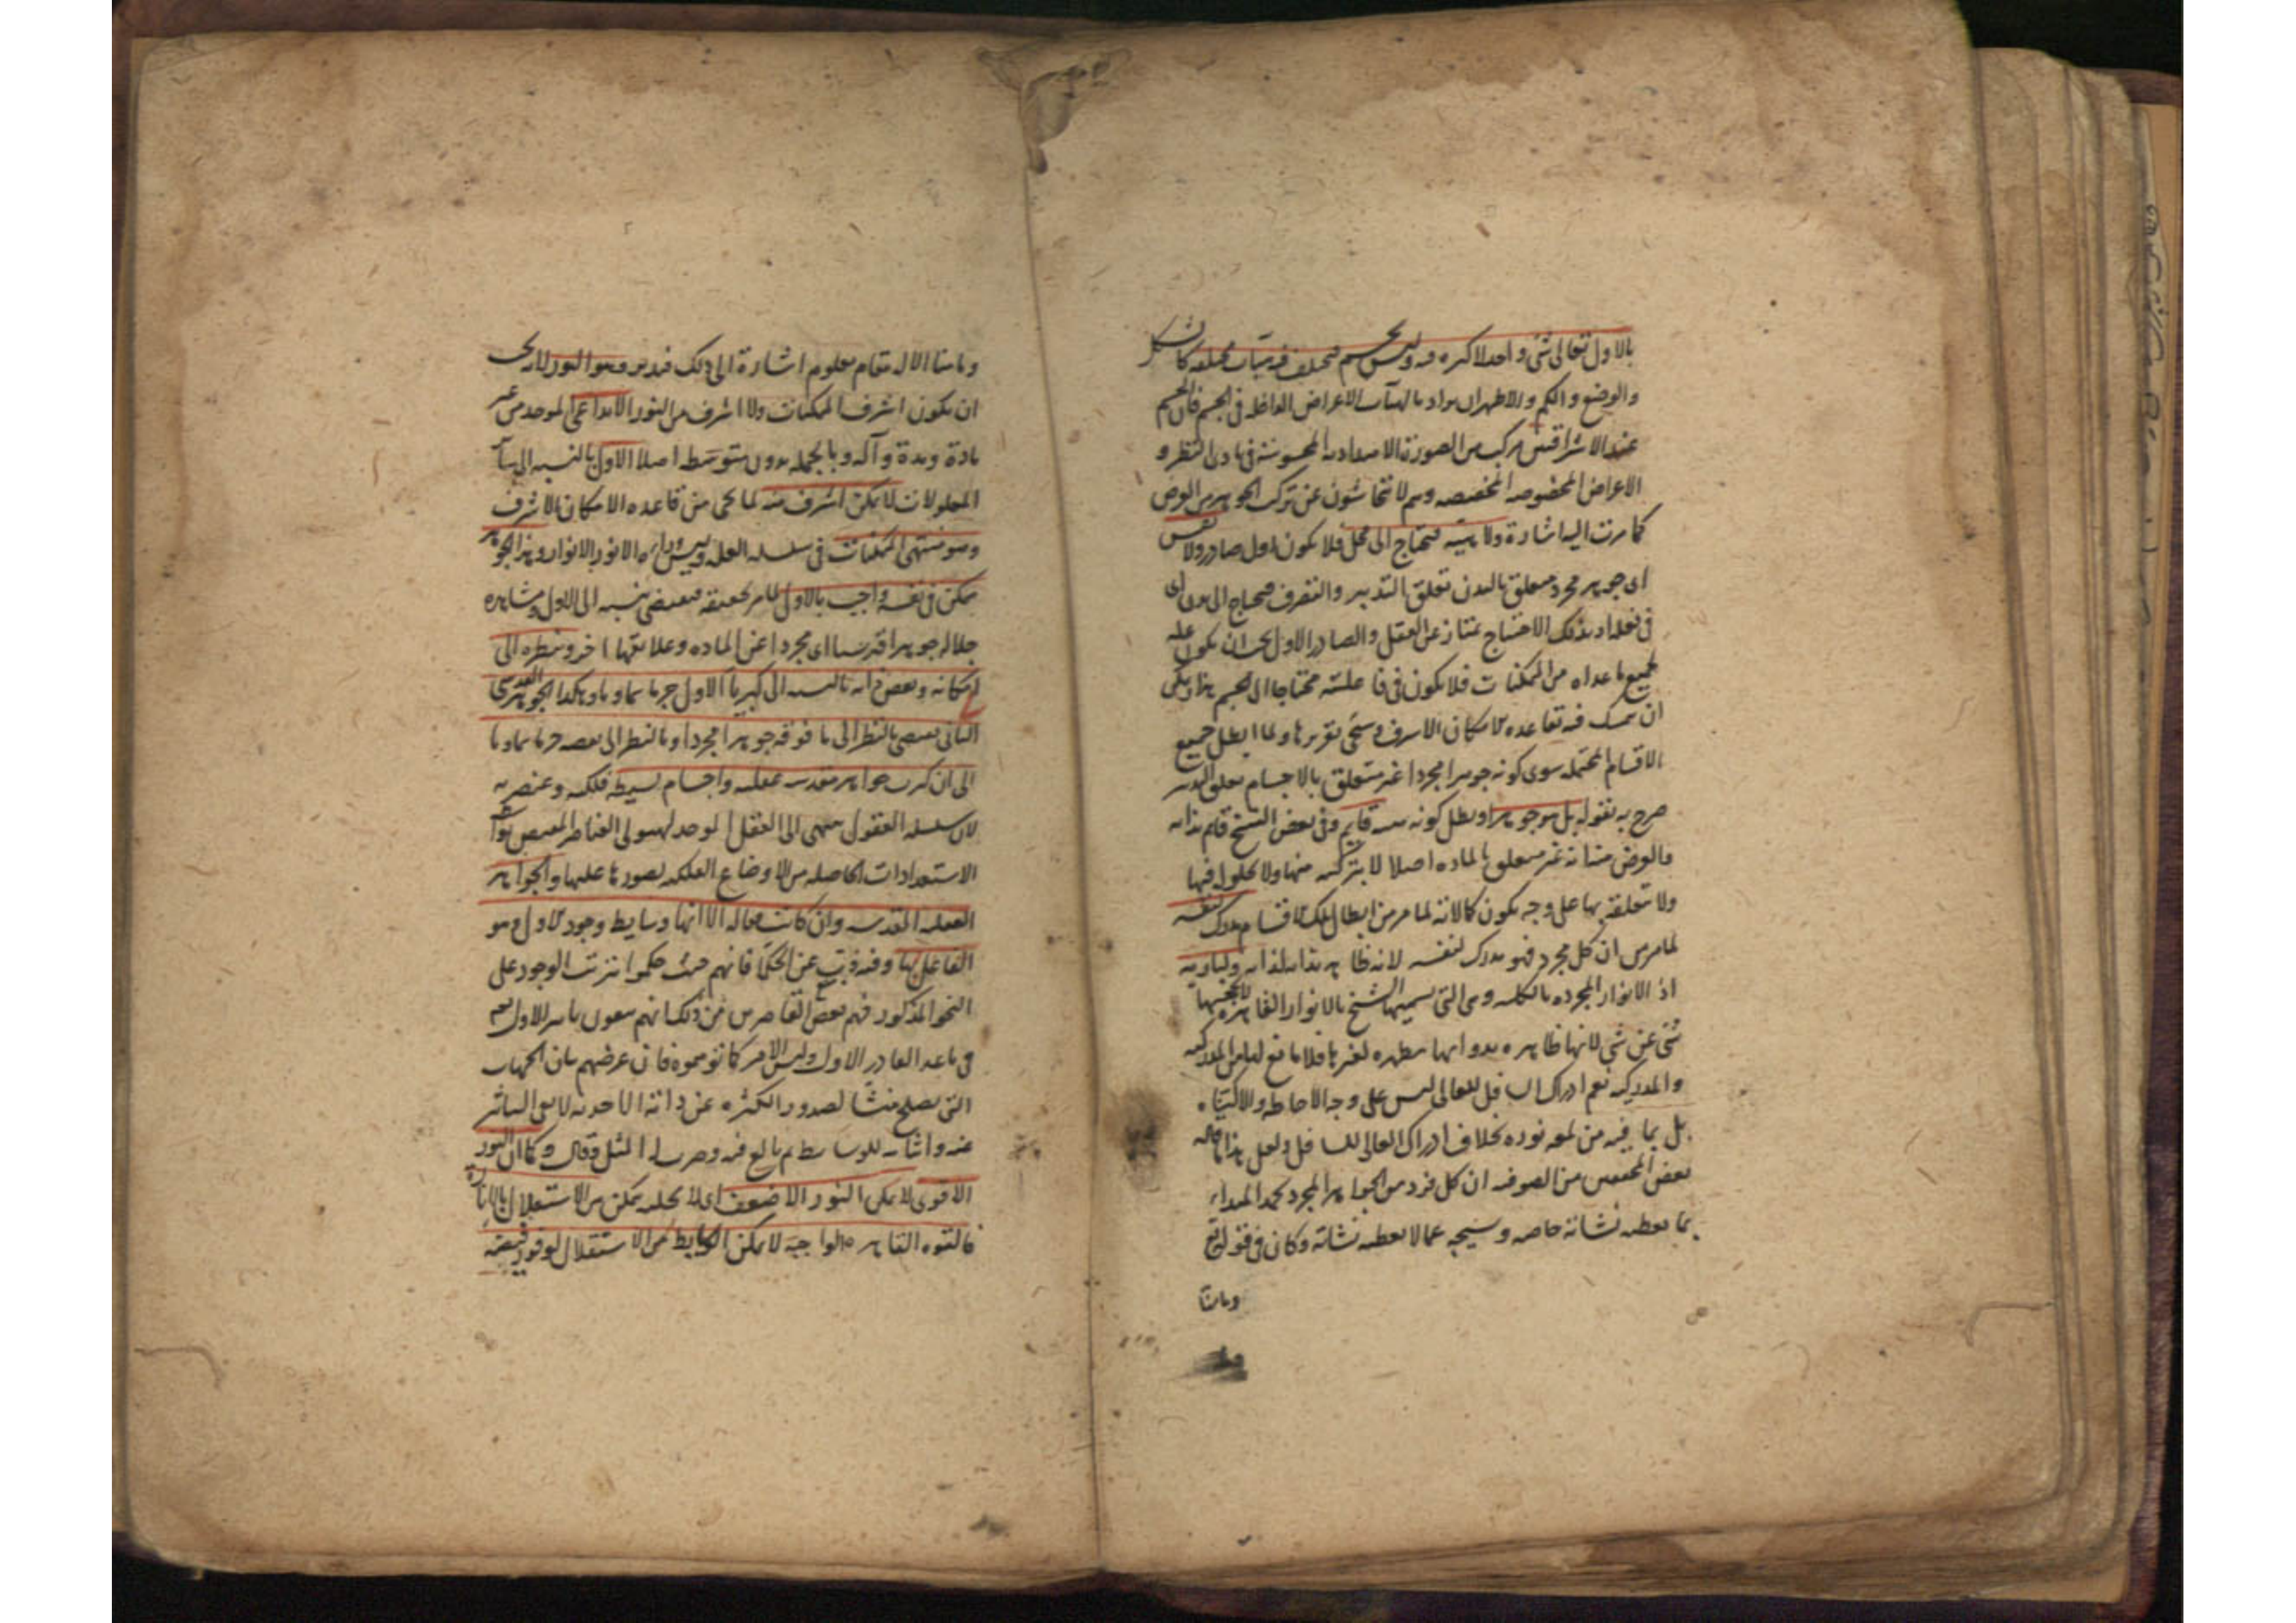 بالاول تعالى شئ واحد لا كثره فيه وليس بجسم فيختلف فيه هيآت مختلفة كالشكل
والوضع والكم والاظهر ان يراد بالهيآت الاعراض الداخله في الجسم فان الجسم
عند الاشراقيين مركب من الصورة الامتدادية المحسوسة في بادى النظر و
الاعراض المخصوصه المخصصه وهم لا يتحاشون عن تركب الجوهر من العرض
كما مرت اليه اشارة ولا هيئة فيحتاج الى محل فلا يكون اول صادر ولا نفس
اى جوهر مجرد متعلق بالبدن تعلق التدبير والتصرف فيحتاج الى بدن اى
في فعله اذ بذلك الاحتياج يمتاز عن العقل والصادر الاول يجب ان يكون علة
لجميع ما عداه من الممكنات فلا يكون في فاعليته محتاجا الى الجسم هذا ويمكن
ان يتمسك فيه بقاعده الامكان الاشرف وسيجئ تقريرها ولما ابطل جميع
الاقسام المحتمله سوى كونه جوهرا مجردا غير متعلق بالاجسام تعلق التدبير
صرح به بقوله بل هو جوهر اذ بطل كونه هيئة قايم وفي بعض النسخ قايم بذاته
والغرض منه انه غير متعلق بالماده اصلا لا بتركبه منها ولا بحلوله فيها
ولا بتعلقه بها على وجه يكون كمالا له لما مر من ابطال تلك الاقسام مدرك لنفسه
لما مر من ان كل مجرد فهو مدرك لنفسه لانه ظاهر بذاته لذاته ولباريه
اذ الانوار المجرده بالكليه وهي التي يسميها الشيخ بالانوار القاهره لا يحجبها
شئ عن شئ لانها ظاهره بذواتها مظهره لغيرها فلا مانع لها من المدركيه
والمدركيه نعم ادراك السافل للعالى ليس على وجه الاحاطه والاكتناه
بل بما فيه من لمعه نوره بخلاف ادراك العالى للسافل ولعل هذا ما قاله
بعض المحققين من الصوفيه ان كل فرد من الجواهر المجرده يحمد المبداء
بما يعطيه نشاته خاصه ويسبحه عما لا يعطيه نشاته وكان في قوله تع
وما منا
وما منا الا له مقام معلوم اشارة الى ذلك فتدبر وهو النور الابداعى
ان يكون اشرف الممكنات ولا اشرف من النور الابداعى الموجد من غير
مادة ومدة وآله وبالجمله بدون متوسط اصلا الاول بالنسبه الى سائر
المعلولات لا يمكن اشرف منه لما يجئ من قاعده الامكان الاشرف
وهو منتهى الممكنات في سلسله العله وليس وراءه الا نور الانوار وهذا الجوهر
ممكن في نفسه واجب بالاول لما مر تحقيقه فيقتضى بنسبه الى الاول ومشاهده
جلاله جوهرا قدسيا اى مجردا عن الماده وعلائقها اخر وبنظره الى
امكانه ونقص ذاته بالنسبه الى كبرياء الاول جرما سماويا وهكذا الجوهر القدسى
الثانى يقتضى بالنظر الى ما فوقه جوهرا مجردا وبالنظر الى نقصه جرما سماويا
الى ان كثرت جواهر مقدسه عقليه واجسام بسيطه فلكيه وعنصريه
لان سلسله العقول ينتهى الى العقل الموجد لهيولى العناصر المفيض بواسطه
الاستعدادات الحاصله من الاوضاع الفلكيه لصورها عليها والجواهر
العقليه المقدسه وان كانت فعاله الا انها وسايط وجود الاول وهو
الفاعل بها وفيه ذب عن الحكما فانهم حيث حكموا بترتب الوجود على
النحو المذكور فهم بعض القاصرين من ذلك انهم ينفون تاثير الاول تعالى
في ما عدا الصادر الاول وليس الامر كما توهموه فان غرضهم بيان الجهات
التى يصلح منشأ لصدور الكثره عن ذاته الاحديه لا نفى التاثير
عنه واثباته للوسايط ثم بالغ فيه وضرب له المثل وقال وكما ان النور
الاقوى لا يمكن النور الاضعف اى لا يجعله يتمكن من الاستقلال بالانارة
فالقوه القاهره الواجبة لا يمكن الوسايط من الاستقلال لوفور فيضه